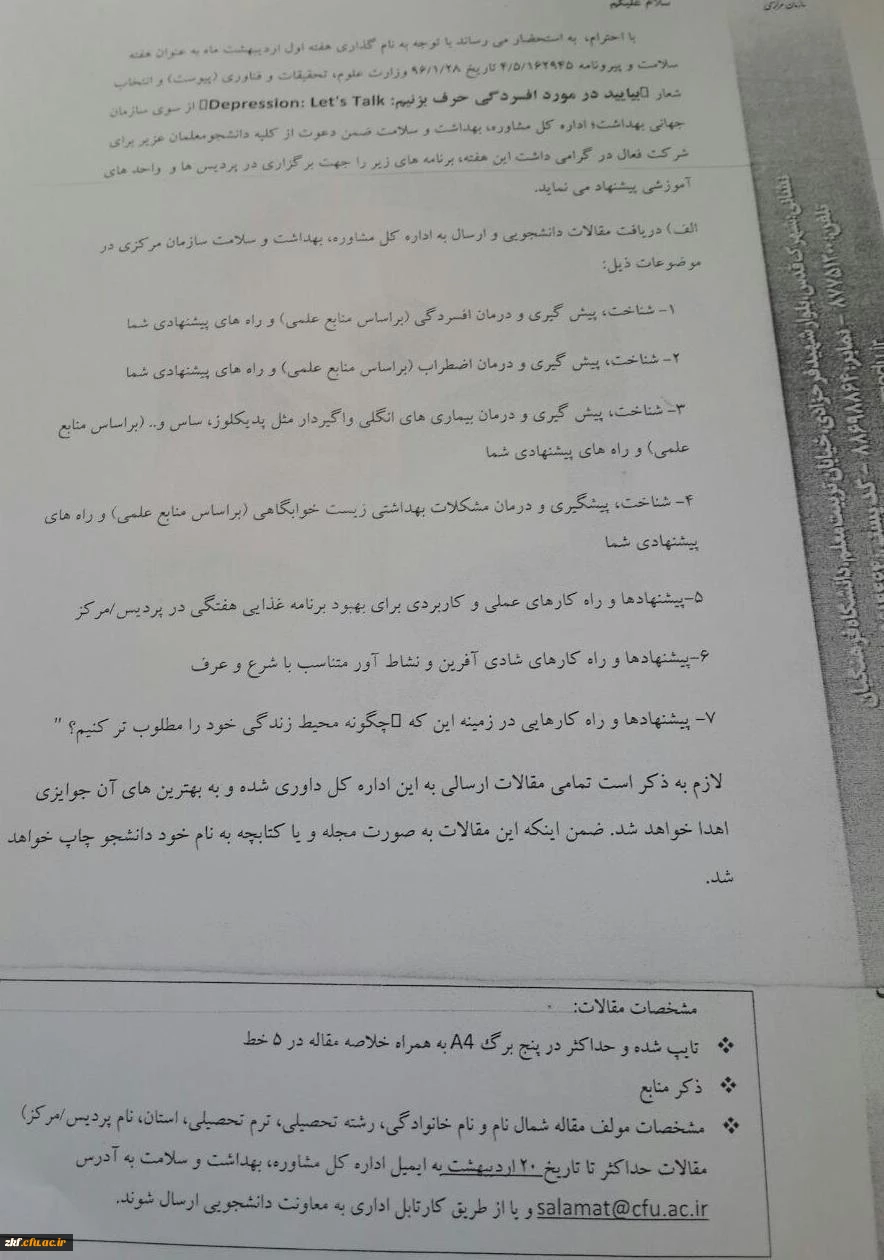 سلام علیکم
سازمان مرکزی
با احترام، به استحضار می رساند با توجه به نام گذاری هفته اول اردیبهشت ماه به عنوان هفته
سلامت و پیرونامه ۴/۵/۱۶۲۹۴۵ تاریخ ۹۶/۱/۲۸ وزارت علوم، تحقیقات و فناوری (پیوست) و انتخاب
شعار "بیایید در مورد افسردگی حرف بزنیم: Depression: Let's Talk" از سوی سازمان
جهانی بهداشت؛ اداره کل مشاوره، بهداشت و سلامت ضمن دعوت از کلیه دانشجومعلمان عزیر برای
شرکت فعال در گرامی داشت این هفته، برنامه های زیر را جهت برگزاری در پردیس ها و واحد های
آموزشی پیشنهاد می نماید.
الف) دریافت مقالات دانشجویی و ارسال به اداره کل مشاوره، بهداشت و سلامت سازمان مرکزی در
موضوعات ذیل:
۱- شناخت، پیش گیری و درمان افسردگی (براساس منابع علمی) و راه های پیشنهادی شما
۲- شناخت، پیش گیری و درمان اضطراب (براساس منابع علمی) و راه های پیشنهادی شما
۳- شناخت، پیش گیری و درمان بیماری های انگلی واگیردار مثل پدیکلوز، ساس و.. (براساس منابع
علمی) و راه های پیشنهادی شما
۴- شناخت، پیشگیری و درمان مشکلات بهداشتی زیست خوابگاهی (براساس منابع علمی) و راه های
پیشنهادی شما
۵-پیشنهادها و راه کارهای عملی و کاربردی برای بهبود برنامه غذایی هفتگی در پردیس/مرکز
۶-پیشنهادها و راه کارهای شادی آفرین و نشاط آور متناسب با شرع و عرف
۷- پیشنهادها و راه کارهایی در زمینه این که "چگونه محیط زندگی خود را مطلوب تر کنیم؟ "
لازم به ذکر است تمامی مقالات ارسالی به این اداره کل داوری شده و به بهترین های آن جوایزی
اهدا خواهد شد. ضمن اینکه این مقالات به صورت مجله و یا کتابچه به نام خود دانشجو چاپ خواهد
شد.
مشخصات مقالات:
❖ تایپ شده و حداکثر در پنج برگ A4 به همراه خلاصه مقاله در ۵ خط
❖ ذکر منابع
❖ مشخصات مولف مقاله شمال نام و نام خانوادگی، رشته تحصیلی، ترم تحصیلی، استان، نام پردیس/مرکز)
مقالات حداکثر تا تاریخ ۲۰ اردیبهشت به ایمیل اداره کل مشاوره، بهداشت و سلامت به آدرس
salamat@cfu.ac.ir و یا از طریق کارتابل اداری به معاونت دانشجویی ارسال شوند.
نشانی: شهرک قدس، بلوار شهید فرحزادی، خیابان تربیت معلم، دانشگاه فرهنگیان
تلفن: ۸۷۷۵۱۲۰۰ - نمابر:
zkf.cfu.ac.ir